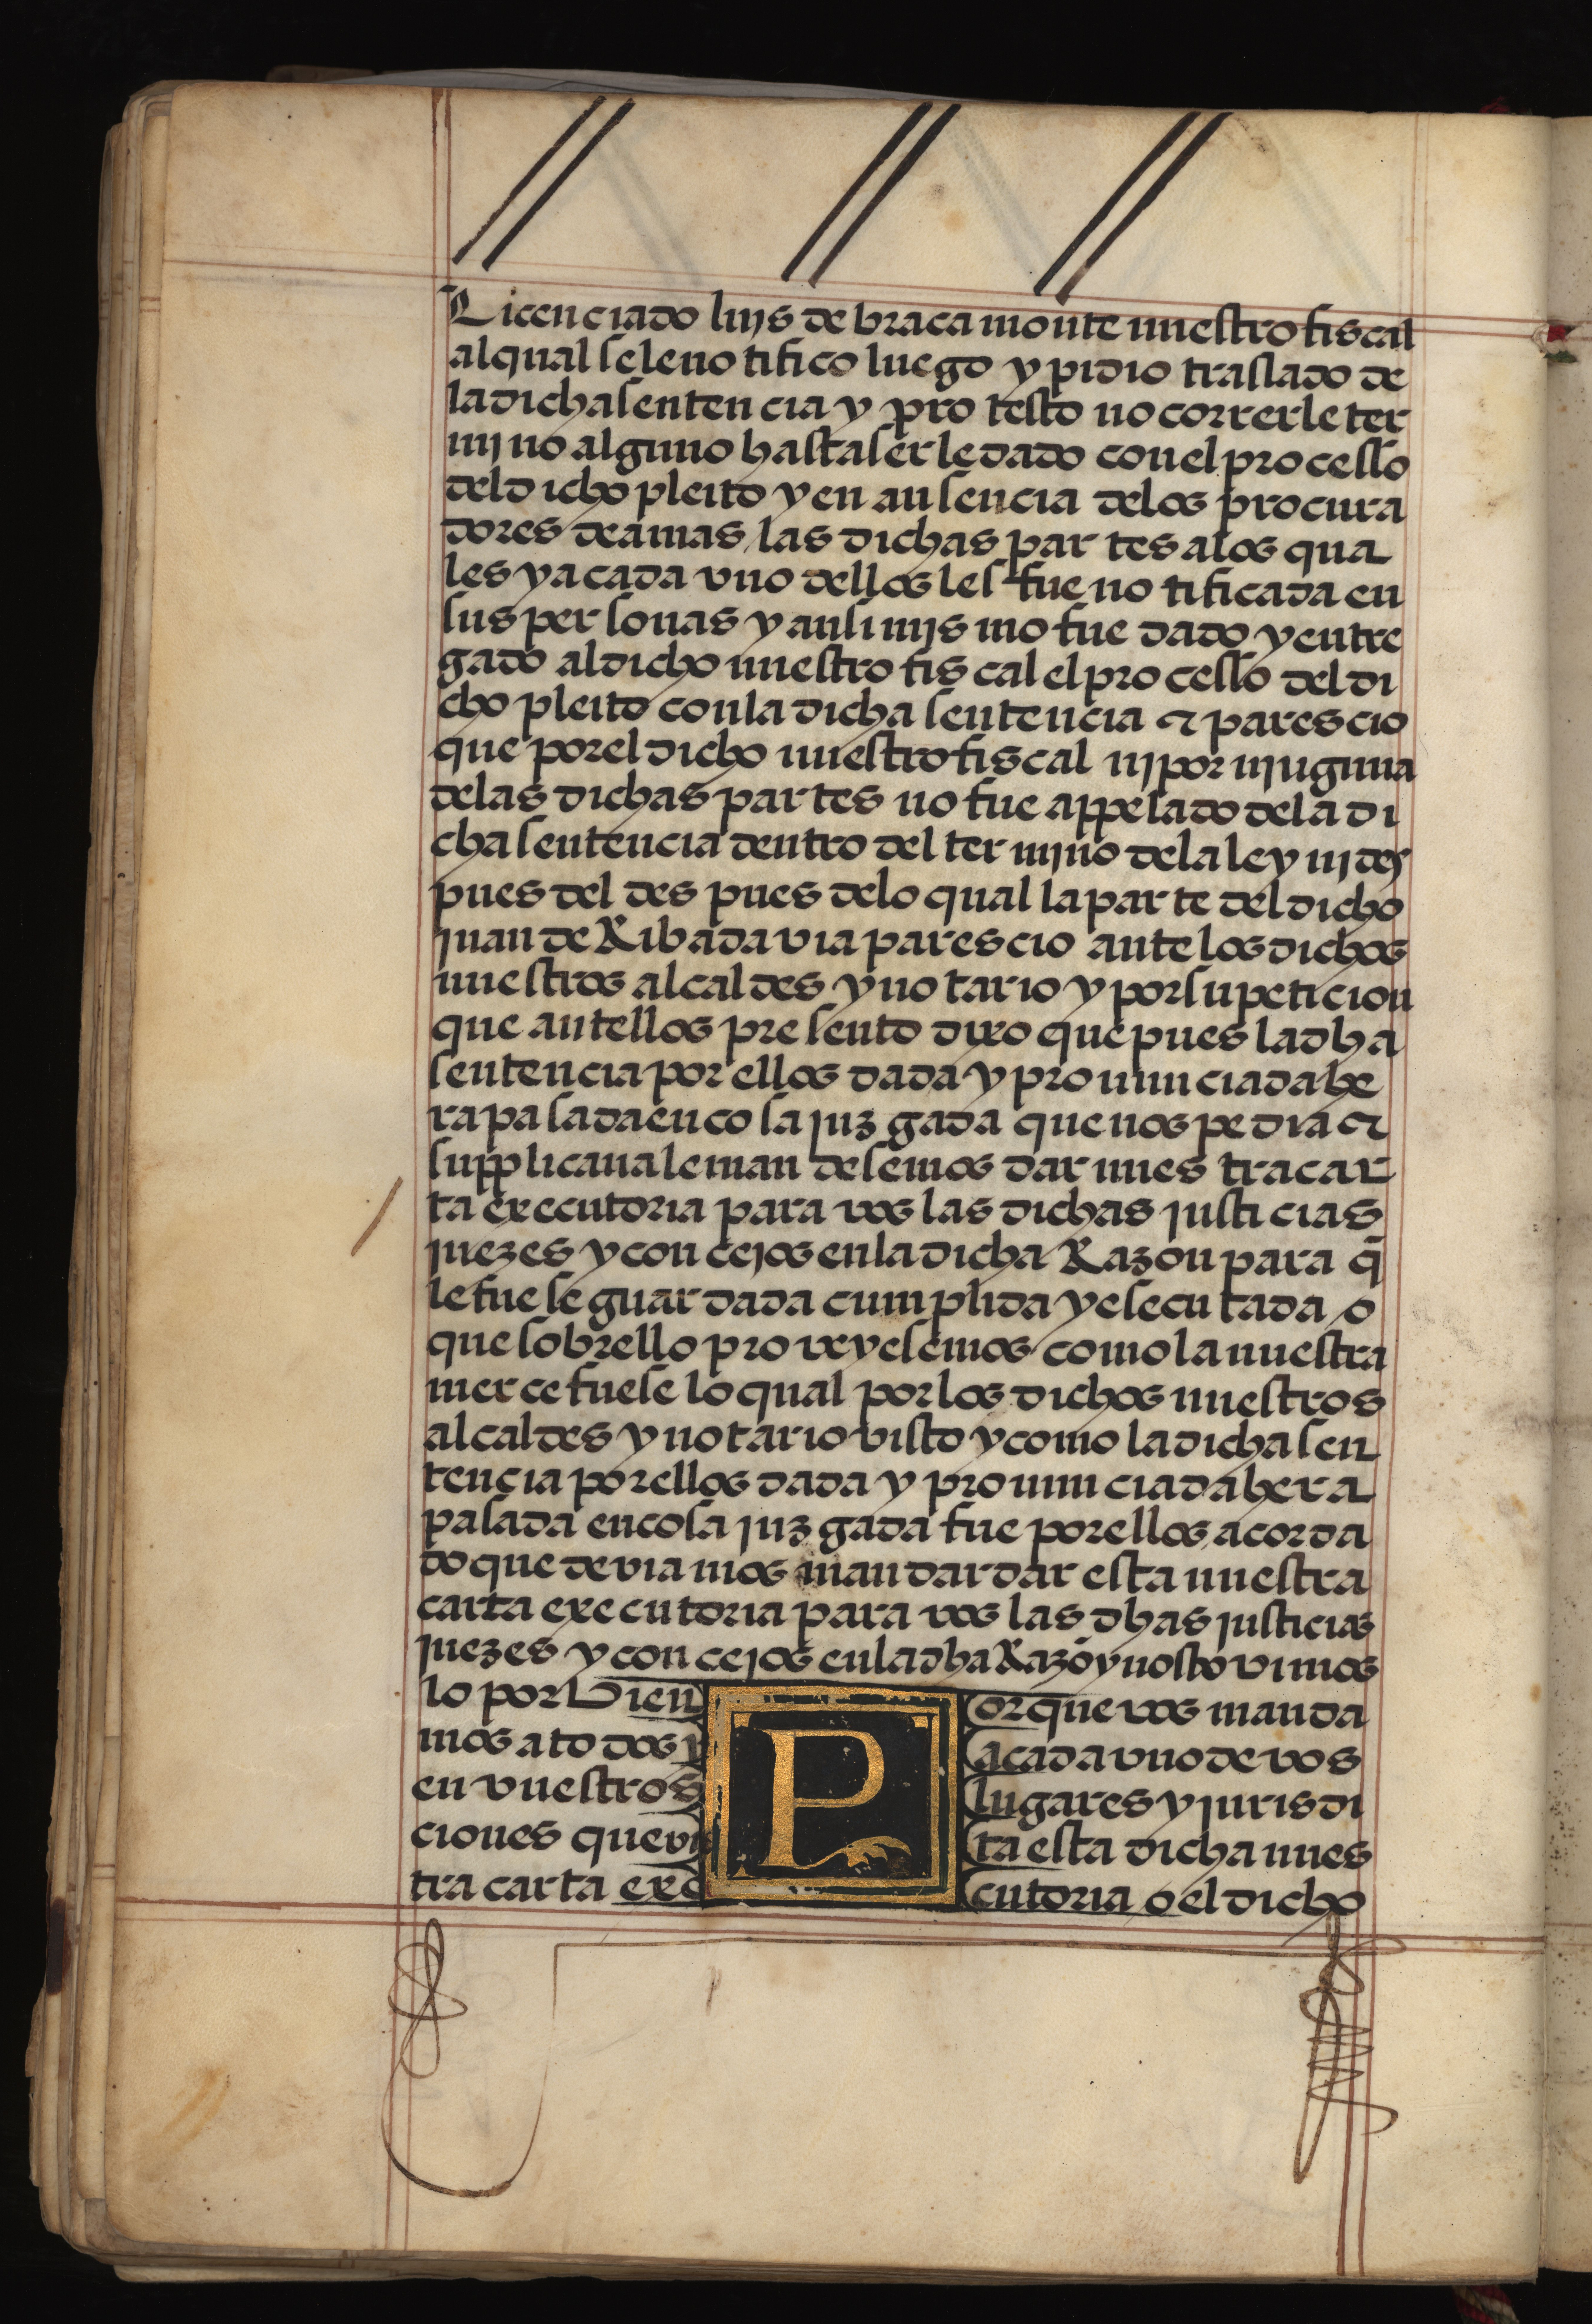 Licenciado luys de bracamonte nuestro fiscal
al qual se le notifico luego y pidio traslado de
la dicha sentencia y protesto no correrle ter
mino alguno hasta serle dado con el processo
del dicho pleito y en ausencia de los procura
dores de amas las dichas partes a los qua
les y a cada vno dellos les fue notificada en
sus personas y ansi mismo fue dado y entre
gado al dicho nuestro fiscal el processo del di
cho pleito con la dicha sentencia & parescio
que por el dicho nuestro fiscal ni por ninguna
de las dichas partes no fue appelado de la di
cha sentencia dentro del termino de la ley ni des
pues del despues de lo qual la parte del dicho
juan de Ribadavia parescio ante los dichos
nuestros alcaldes y notario y por su peticion
que antellos presento dixo que pues la dha
sentencia por ellos dada y pronunciada he
ra pasada en cosa juzgada que nos pedia &
supplicaua le mandesemos dar nuestra car
ta executoria para vos las dichas justicias
juezes y concejos en la dicha Razon para q̄
le fuese guardada cumplida y esecutada o
que sobrello proveyesemos como la nuestra
merce fuese lo qual por los dichos nuestros
alcaldes y notario visto y como la dicha sen
tencia por ellos dada y pronunciada hera
pasada en cosa juzgada fue por ellos acorda
do que deviamos mandar dar esta nuestra
carta executoria para vos las dhas justicias
juezes y concejos en la dha Razō y nos tovimos
lo por bien Porque vos manda
mos a todos y a cada vno de vos
en vuestros lugares y jurisdi
ciones que vista esta dicha nues
tra carta executoria o el dicho